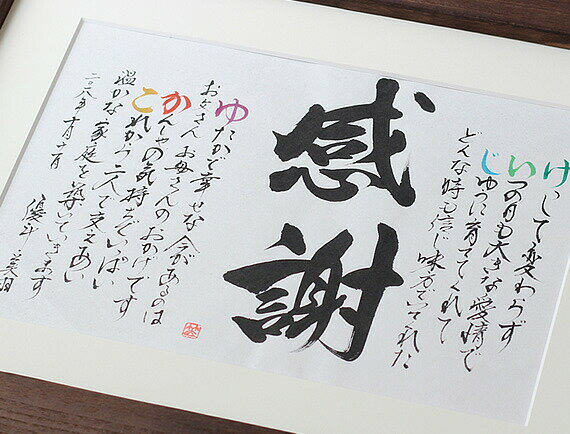 けっして変わらず
いつの日も大きな愛情で
じゆうに育ててくれて
どんな時も信じ味方でいてくれた
感謝
ゆたかで幸せな今があるのは
お父さん お母さんのおかげです
かんしゃの気持ちでいっぱい
これから二人で支えあい
温かな家庭を築いていきます
二〇一八年十月十一日
優斗